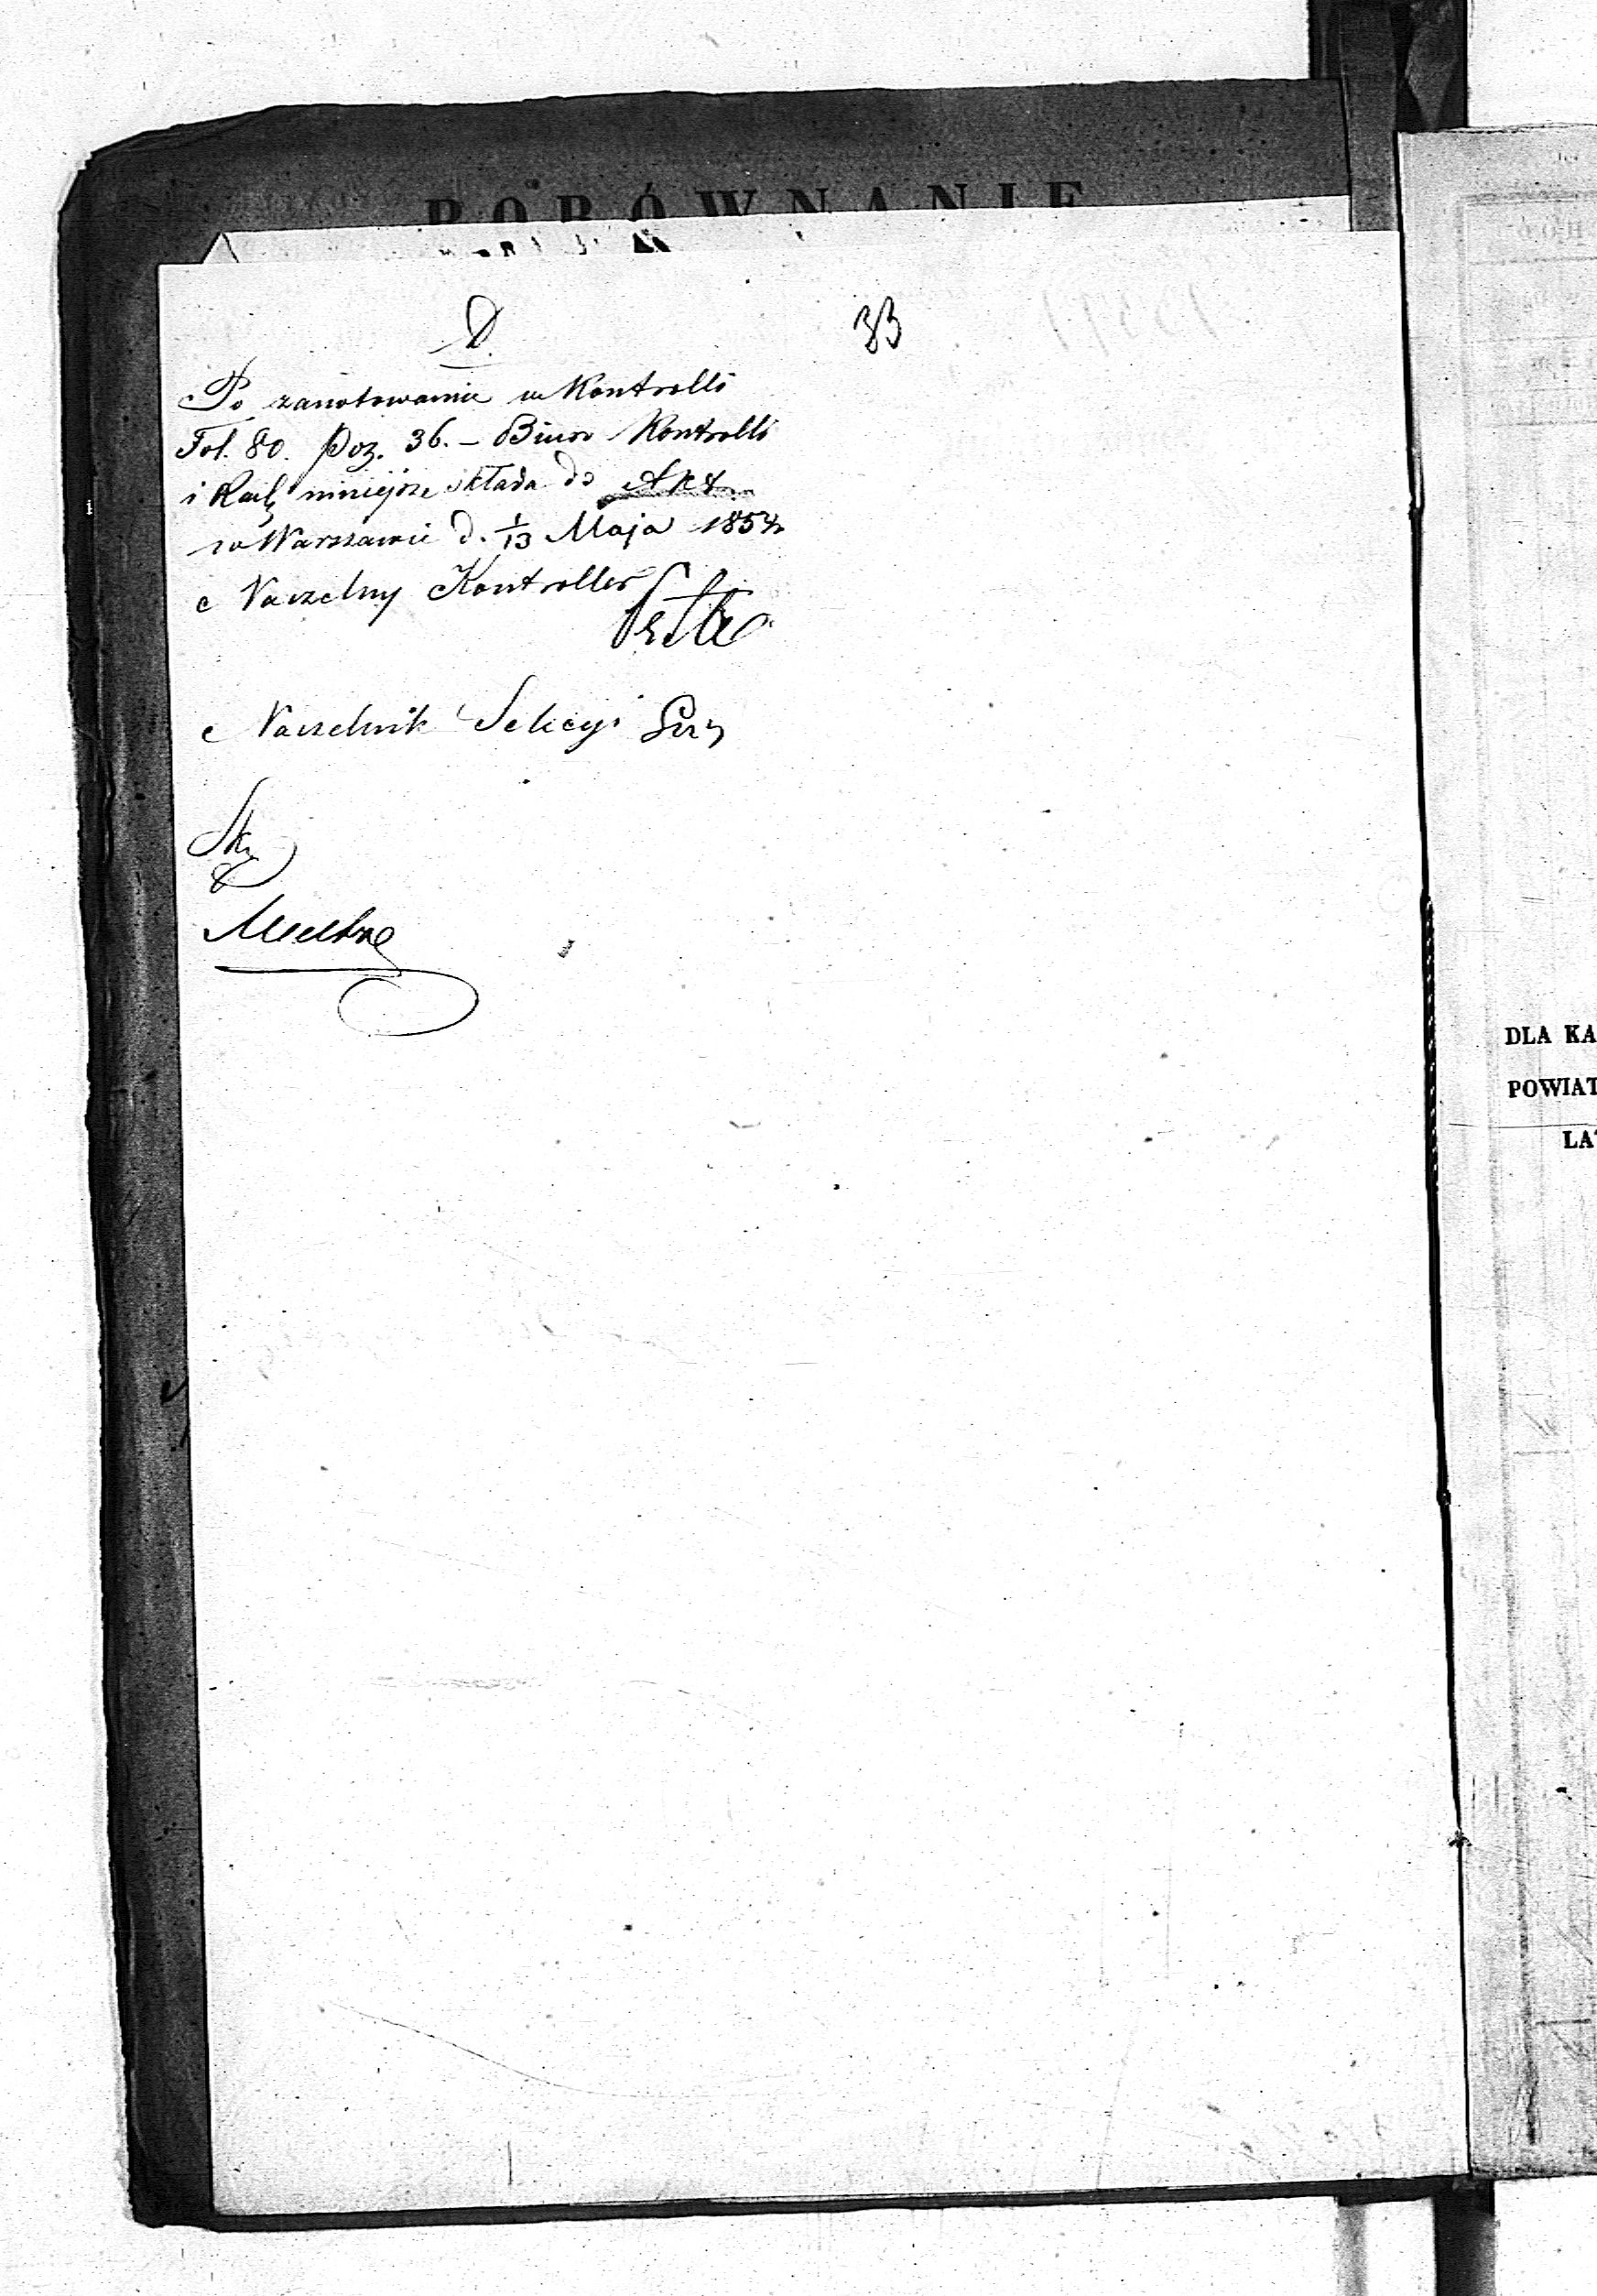 PORÓWNANIE
D.
33
Po zanotowaniu w Kontrolli
Fol. 80. Poz. 36. – Biuro Kontrolli
i Rach niniejsze składa do Akt
w Warszawie d. 1/13 Maja 1854
Naczelny Kontroller
Naczelnik Sekcyi
DLA KA
POWIAT
LA